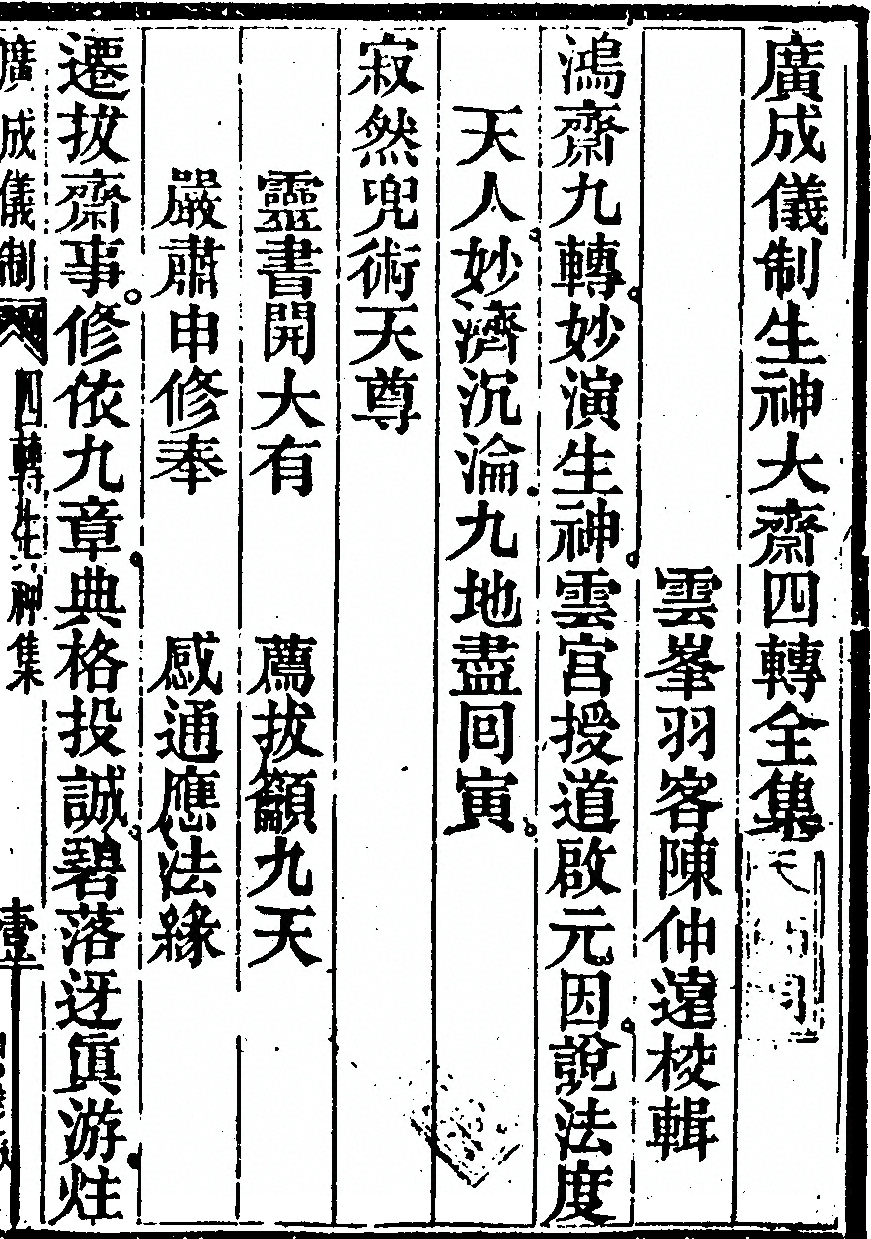 廣成儀制生神大齋四轉全集
雲峯羽客陳仲遠校輯
鴻齋九轉妙演生神雲宮授道啟元因說法度
天人妙濟沉淪九地盡囘寅
寂然兜術天尊
靈書開大有　薦拔籲九天
嚴肅申修奉　感通應法緣
遷拔齋事修依九章典格投誠碧落迓眞游炷
廣成儀制　四轉生神集　壹